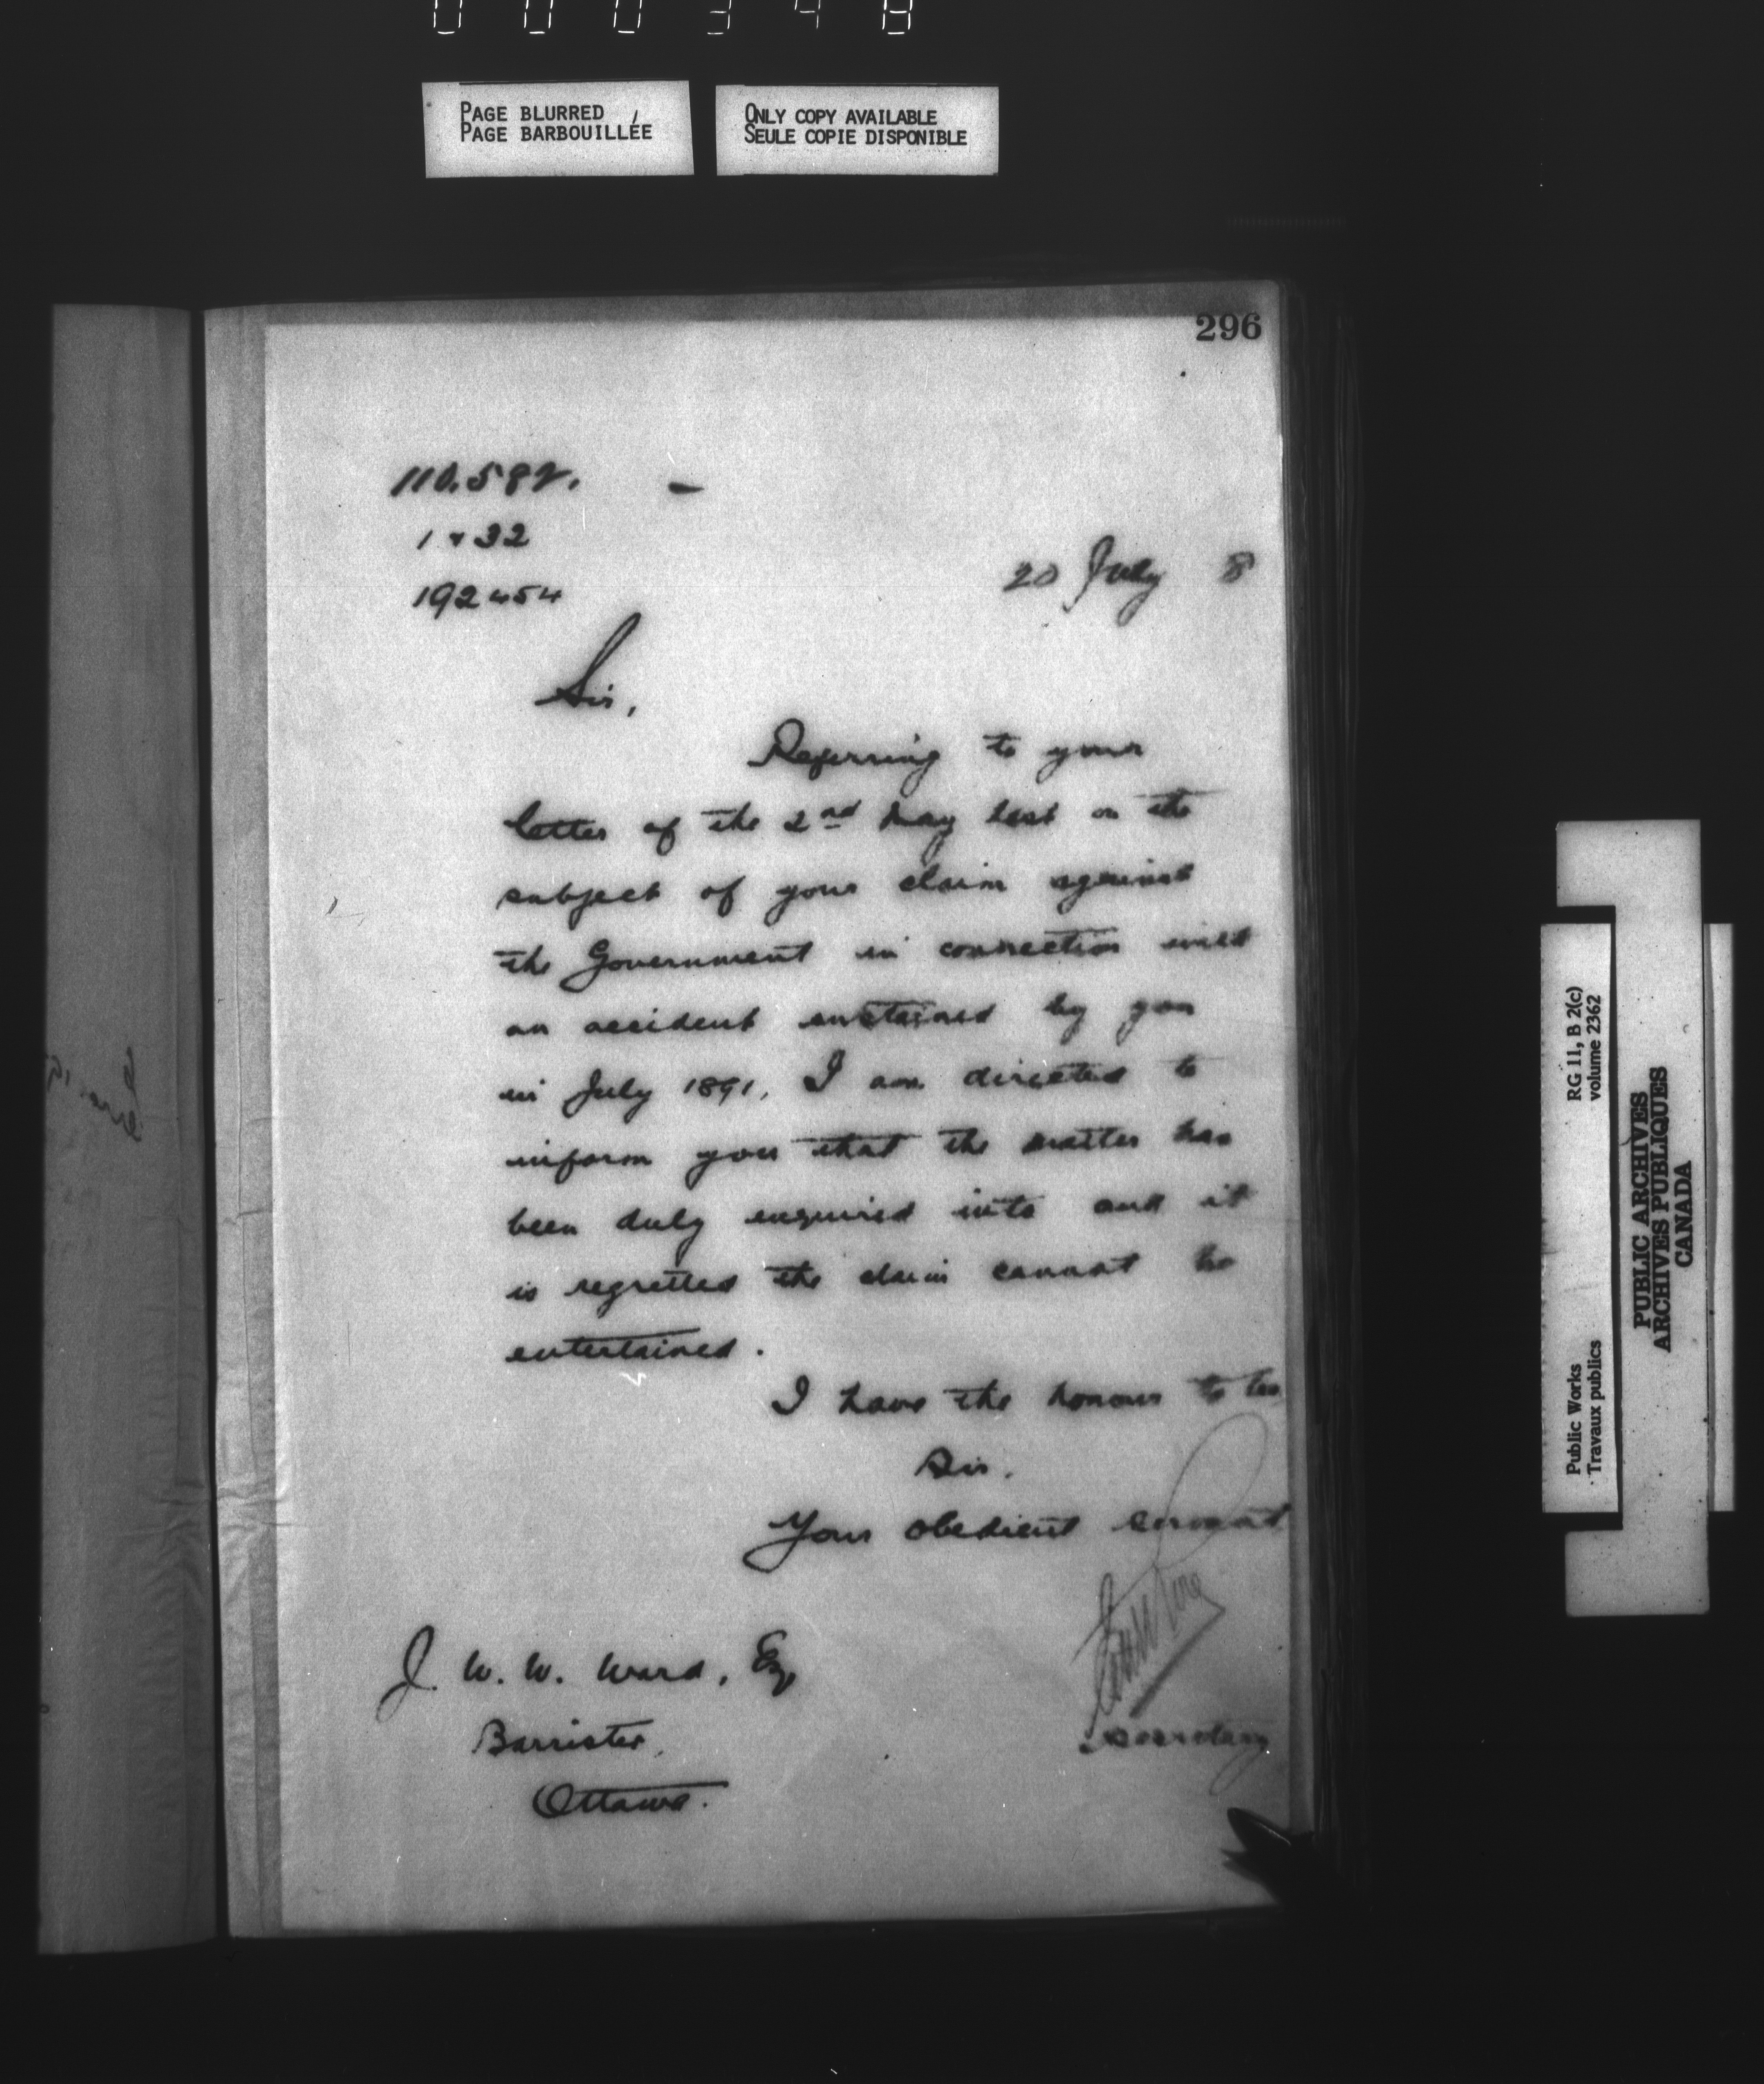 000348
PAGE BLURRED
PAGE BARBOUILLÉE
ONLY COPY AVAILABLE
SEULE COPIE DISPONIBLE
296
110.582.
1 & 32
192454
20 July 8
Sir,
Referring to your
letter of the 2nd May last on the
subject of your claim against
the Government in connection with
an accident sustained by you
in July 1891, I am directed to
inform you that the matter has
been duly enquired into and it
is regretted the claim cannot be
entertained.
I have the honour to be
Sir,
Your obedient servant
Secretary
J. W. W. Ward, Esq
Barrister,
Ottawa.
RG 11, B 2(c)
volume 2362
Public Works
Travaux publics
PUBLIC ARCHIVES
ARCHIVES PUBLIQUES
CANADA